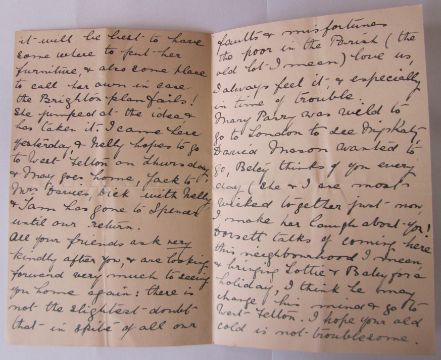 it will be best to have
some where to put her
furniture, & also some place
to call her own in case
the Brighton plan fails!
She jumped at the idea &
has taken it. I came here
yesterday, & Nelly hopes to go
to West Felton on Thursday
& May goes home, Jack to
Mrs Davies, Dick with Nelly
& Sam has gone to Spend
until our return.
All your friends ask very
kindly after you, & are looking
forward very much to seeing
you home again: there is
not the slightest doubt
that in spite of all our
faults & misfortunes
the poor in the Parish (the
old lot I mean) love us,
I always feel it, & especially
in time of trouble.
Mary Parry was wild to
go to London to see
David Mason wanted to
go, Betsy thinks of you every
day (she & I are most
wicked together just now
I make her laugh about you!
Dorsett talks of coming here
this neighbourhood I mean
& bringing Lottie & Baby for a
holiday, I think he may
change his mind & go to
West Felton. I hope your old
cold is not troublesome.